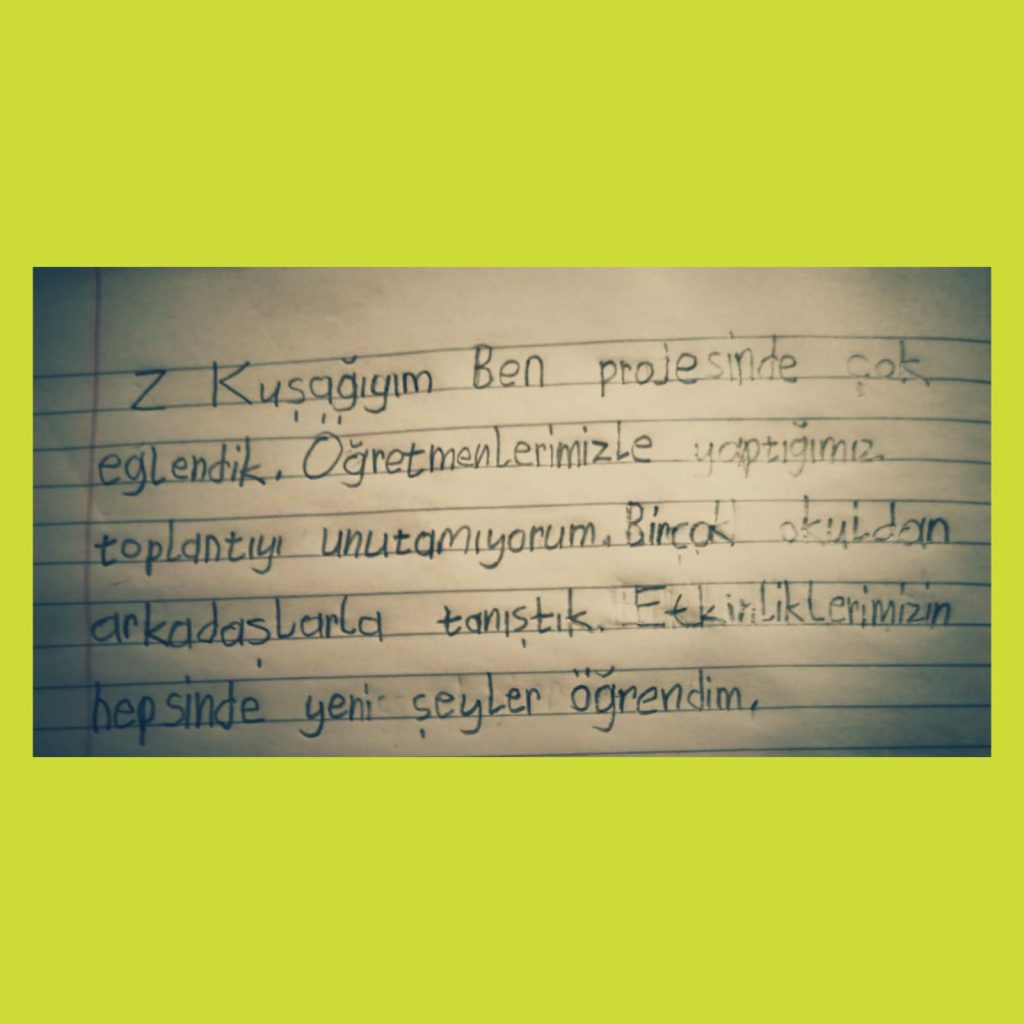 Z Kuşağıyım Ben projesinde çok
eğlendik. Öğretmenlerimizle yaptığımız
toplantıyı unutamıyorum. Birçok okuldan
arkadaşlarla tanıştık. Etkinliklerimizin
hepsinde yeni şeyler öğrendim.